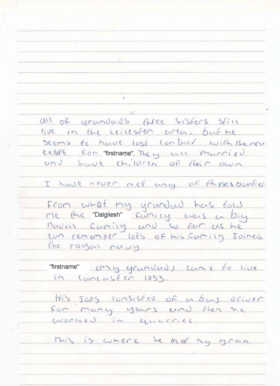 All of grandads three sisters still
live in the Leicester area, but he
seems to have lost contact with them
exept for "firstname". They all married
and have children of their own
I have never met any of these
From what my grandad has told
me the "Dalgliesh" family was a big
family and so far as he
can remember lots of his family joined
the royal navy
"firstname" (my grandad) came to live
in Lancaster 1953.
His Jobs consisted of a bus driver
for many years and then he
worked in quarries.
This is where he met my gran